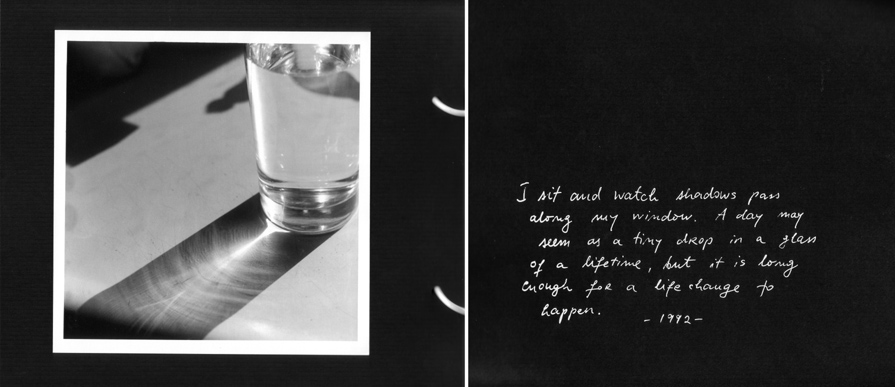 I sit and watch shadows pass
along my window. A day may
seem as a tiny drop in a glass
of a lifetime, but it is long
enough for a life change to
happen.
- 1992 -